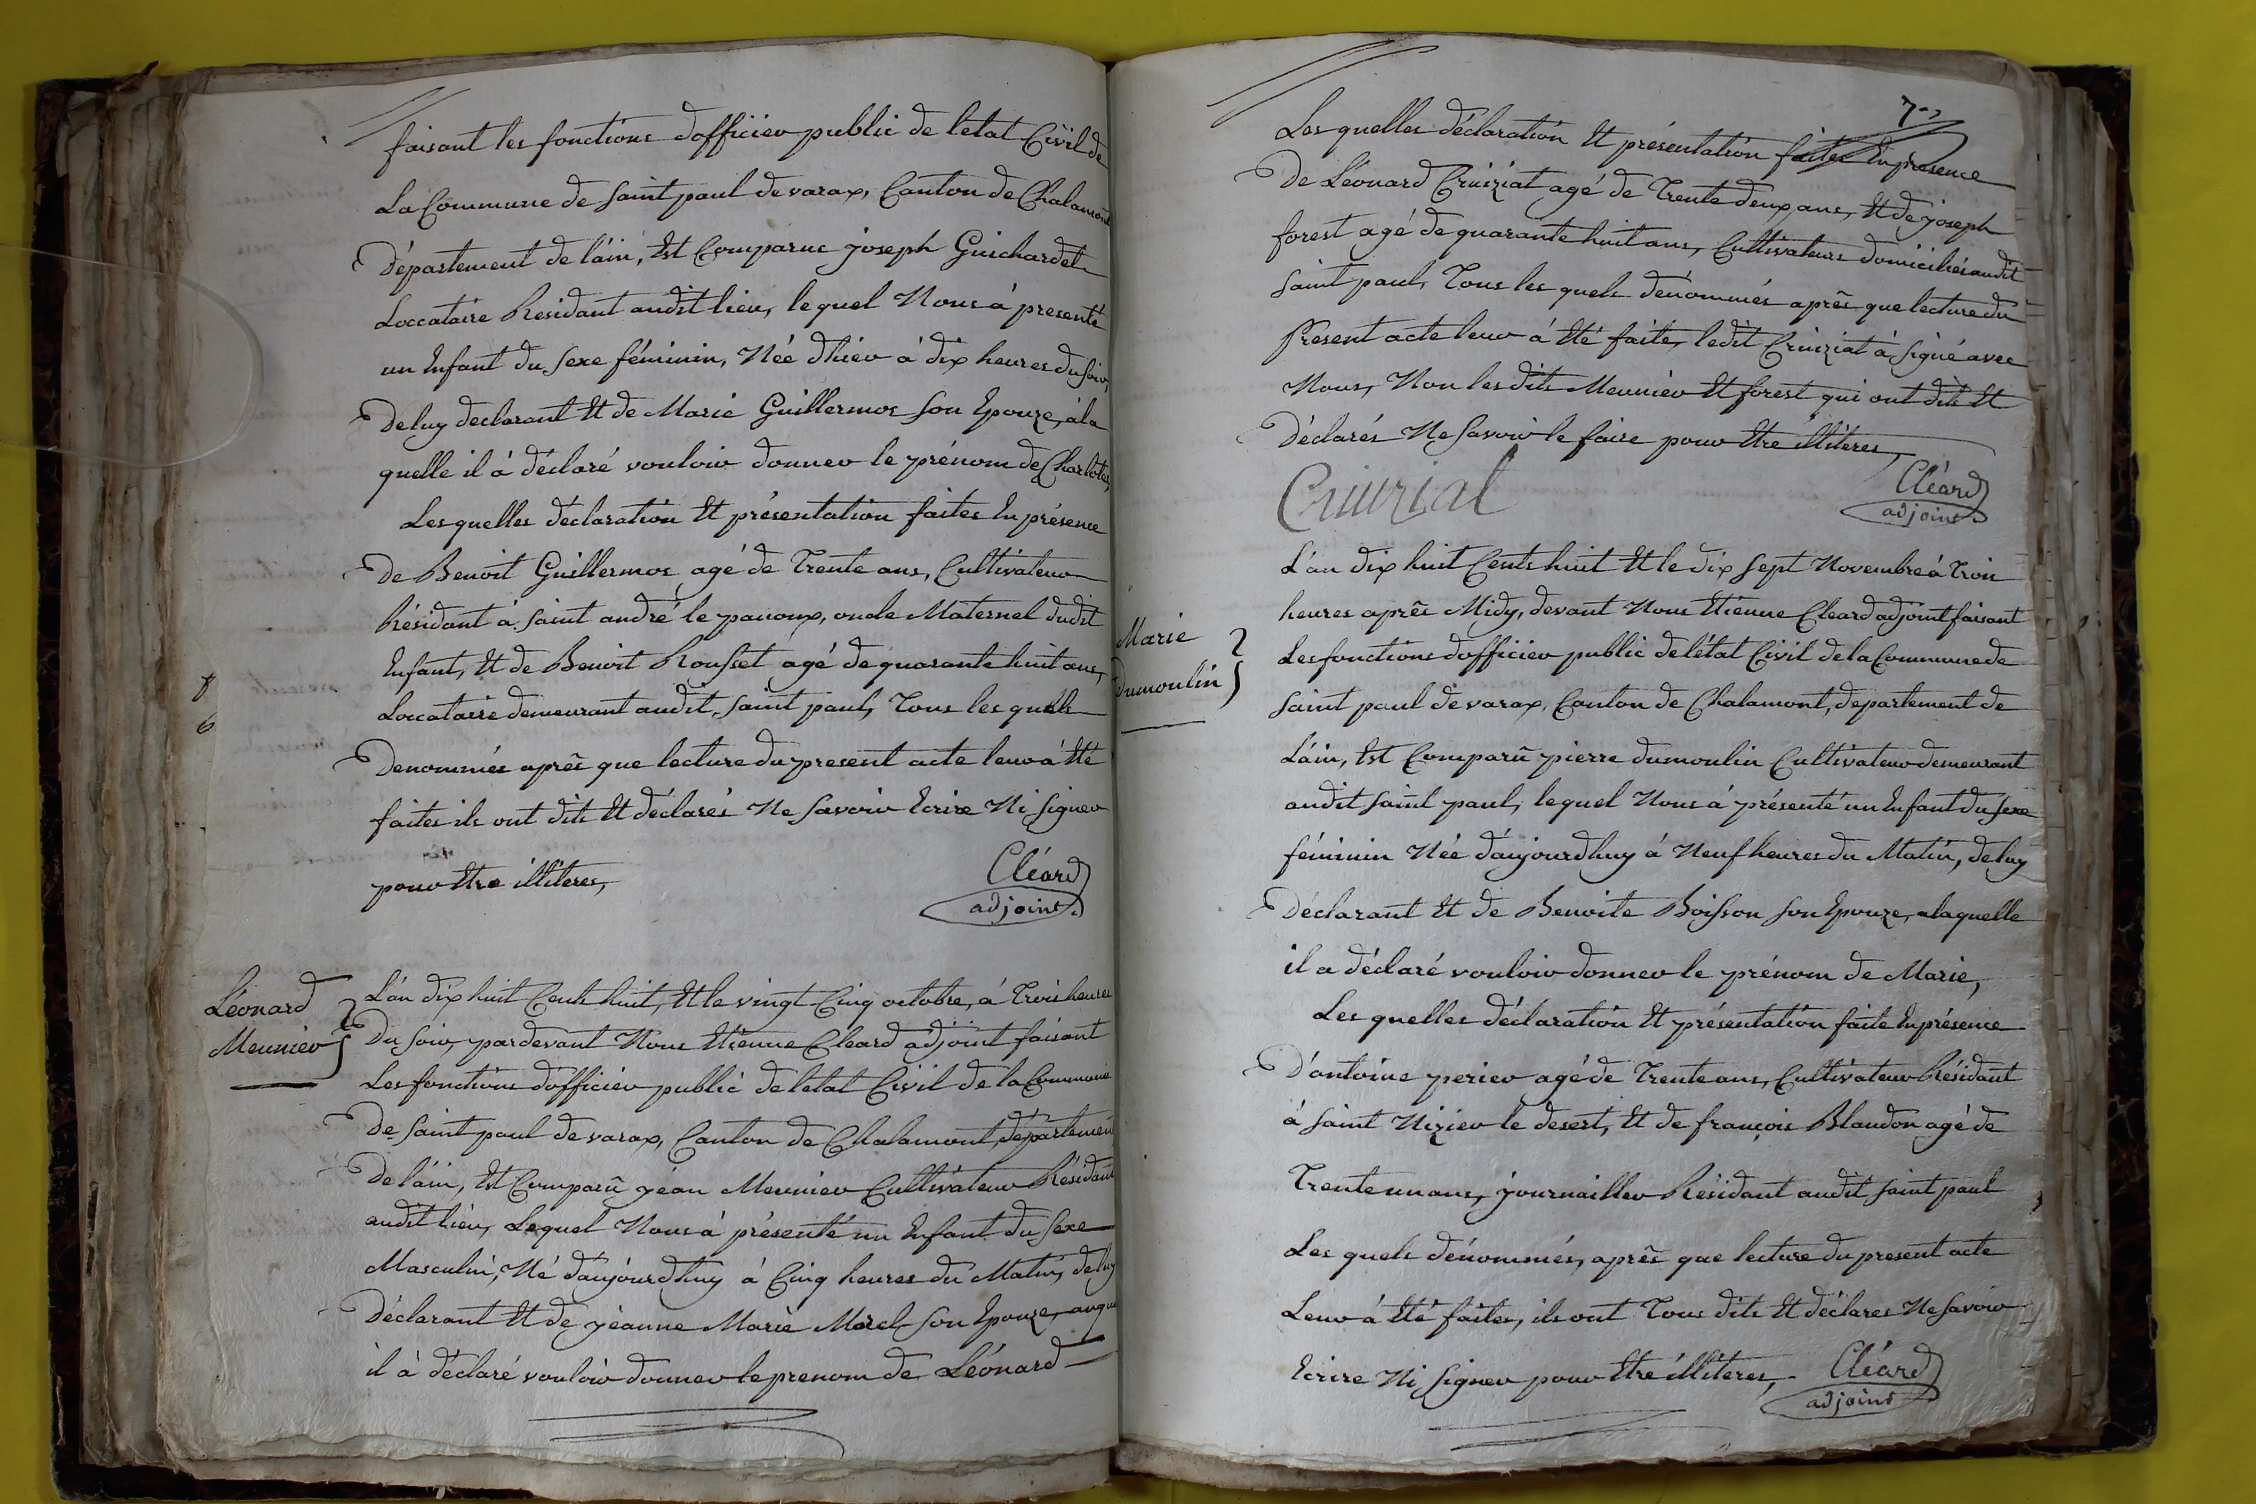 faisant les fonctions d'officier public de létat Civil de
La Commune de Saint paul de varax, Canton de Chalamont
Département de láin, Est Comparue joseph Guichardet
Loccataire Residant audit lieu, lequel Nous à presenté
un Enfant du Sexe féminin, Née d'hier à dix heures du Soir,
De luy declarant Et de Marie Guillermoz Son Epouze, à la
quelle il à déclaré vouloir donner le prénom de Charlotte,
Les quelles déclaration Et présentation faites En présence
De Benoit Guillermoz agé de Trente ans, Cultivateur
Résidant à Saint andré le panoux, oncle Maternel dudit
Enfant, Et de Benoit Rousset agé de quarante huit ans,
Loccataire demeurant audit Saint paul, Tous les quels
Denommés après que lecture du present acte leur à Eté
faites ils ont dits Et déclarés Ne Savoir Ecrire Ni Signer
pour Etre illiteres,
Cléard
adjoint
Léonard
Meunier
L'án dix huit Cents huit, Et le vingt Cinq octobre, à Trois heures
Du Soir, pardevant Nous Etienne Cleard adjoint faisant
Les fonctions d'officier public de létat Civil de la Commune
De Saint paul de varax, Canton de Chalamont, département
De láin, Est Comparû jéan Meunier Cultivateur Résidant
audit lieu, Lequel Nous à présenté un Enfant du Sexe
Masculin, Né d'aujourd'huy à Cinq heures du Matin, de luy
Déclarant Et de jéanne Marie Morel Son Epouze, auquel
il à déclaré vouloir donner le prenom de Léonard
7
Les quelles déclaration Et présentation faites En présence
De Léonard Cruiziat agé de Trente deux ans, Et de joseph
forest agé de quarante huit ans, Cultivateurs domiciliés audit
Saint paul, Tous les quels dénommés après que lecture du
Present acte leur à Eté faite, ledit Cruiziat à Signé avec
Nous, Non les dits Meunier Et forest qui ont dits Et
Déclarés Ne Savoir le faire pour Etre illiteres,
Cruizial
Cléard
adjoint
Marie
Dumoulin
L'án dix huit Cents huit Et le dix Sept Novembre à Trois
heures après Midy, devant Nous Etienne Cleard adjoint faisant
Les fonctions d'officier public de létat Civil de la Commune de
Saint paul de varax, Canton de Chalamont, departement de
Láin, Est Comparû pierre dumoulin Cultivateur demeurant
audit Saint paul, lequel Nous à présenté un Enfant du Sexe
féminin Née d'aujourd'huy à Neuf heures du Matin, de luy
Déclarant Et de Benoite Boisson Son Epouze, a laquelle
il a déclaré vouloir donner le prénom de Marie,
Les quelles déclaration Et présentation faite En présence
D'antoine perier agé de Trente ans, Cultivateur Résidant
à Saint Nizier le desert, Et de françois Blandon agé de
Trente un ans, journailler Résidant audit Saint paul
Les quels dénommés, après que lecture du present acte
Leur à Eté faites, ils ont Tous dits Et déclares Ne Savoir
Ecrire Ni Signer pour Etre illiteres,
Cléard
adjoint